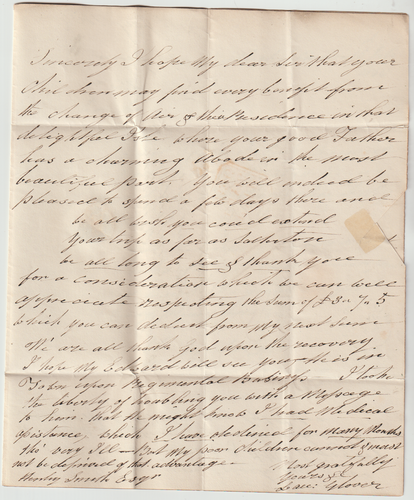 Sincerely I hope My dear Sir that your
Children may find every benefit from
the change of Air & this Residence in that
delightful Isle where your good Father
has a charming Abode in the most
beautiful part. You will indeed be
pleased to spend a few days there and
be all wish you could extend
Your trip as far as
be all long to see & thank you
for a consideration which we can well
appreciate respecting the Sum of £8 " 7 " 5
which you can deduct from My next Sum
We are all thank God upon the recovery
I hope My Edward will see you He is in
Town upon Regimental Business I took
the liberty of troubling you with a Message
to him that he might know I had Medical
Assistance, which I have declined for many Months
tho' very Ill — But My poor Children cannot & must
not be deprived of that advantage
Most gratefully
Henry Smith Esqr Yours &
Glover